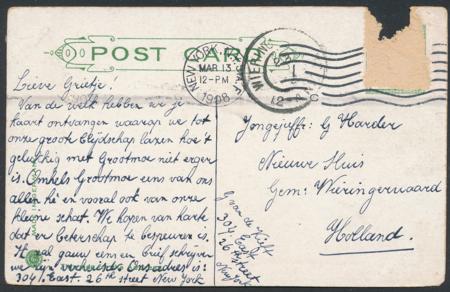 POST CARD
NEW YORK, STA. F
MAR 13
12-PM
1908
WIERING
12-
Lieve Grietje!
Van de welk hebben we je
kaart ontvangen waarop we tot
onze groote blijdschap lazen hoe't
gelukkig met Grootmoe niet erger
is. Omhels Grootmoe eens van ons
allen hé en vooral ook van onze
kleine schat. We hopen van harte
dat er beterschap te bespeuren is.
Ik zal gauw eens een brief schrijven
Ons adres is:
304 East. 26th street New York
Jongejuffr: G Harder
Nieuwe Sluis
Gem: Wieringerwaard
Holland.
G van de Kieft
304 East
26 street
New York